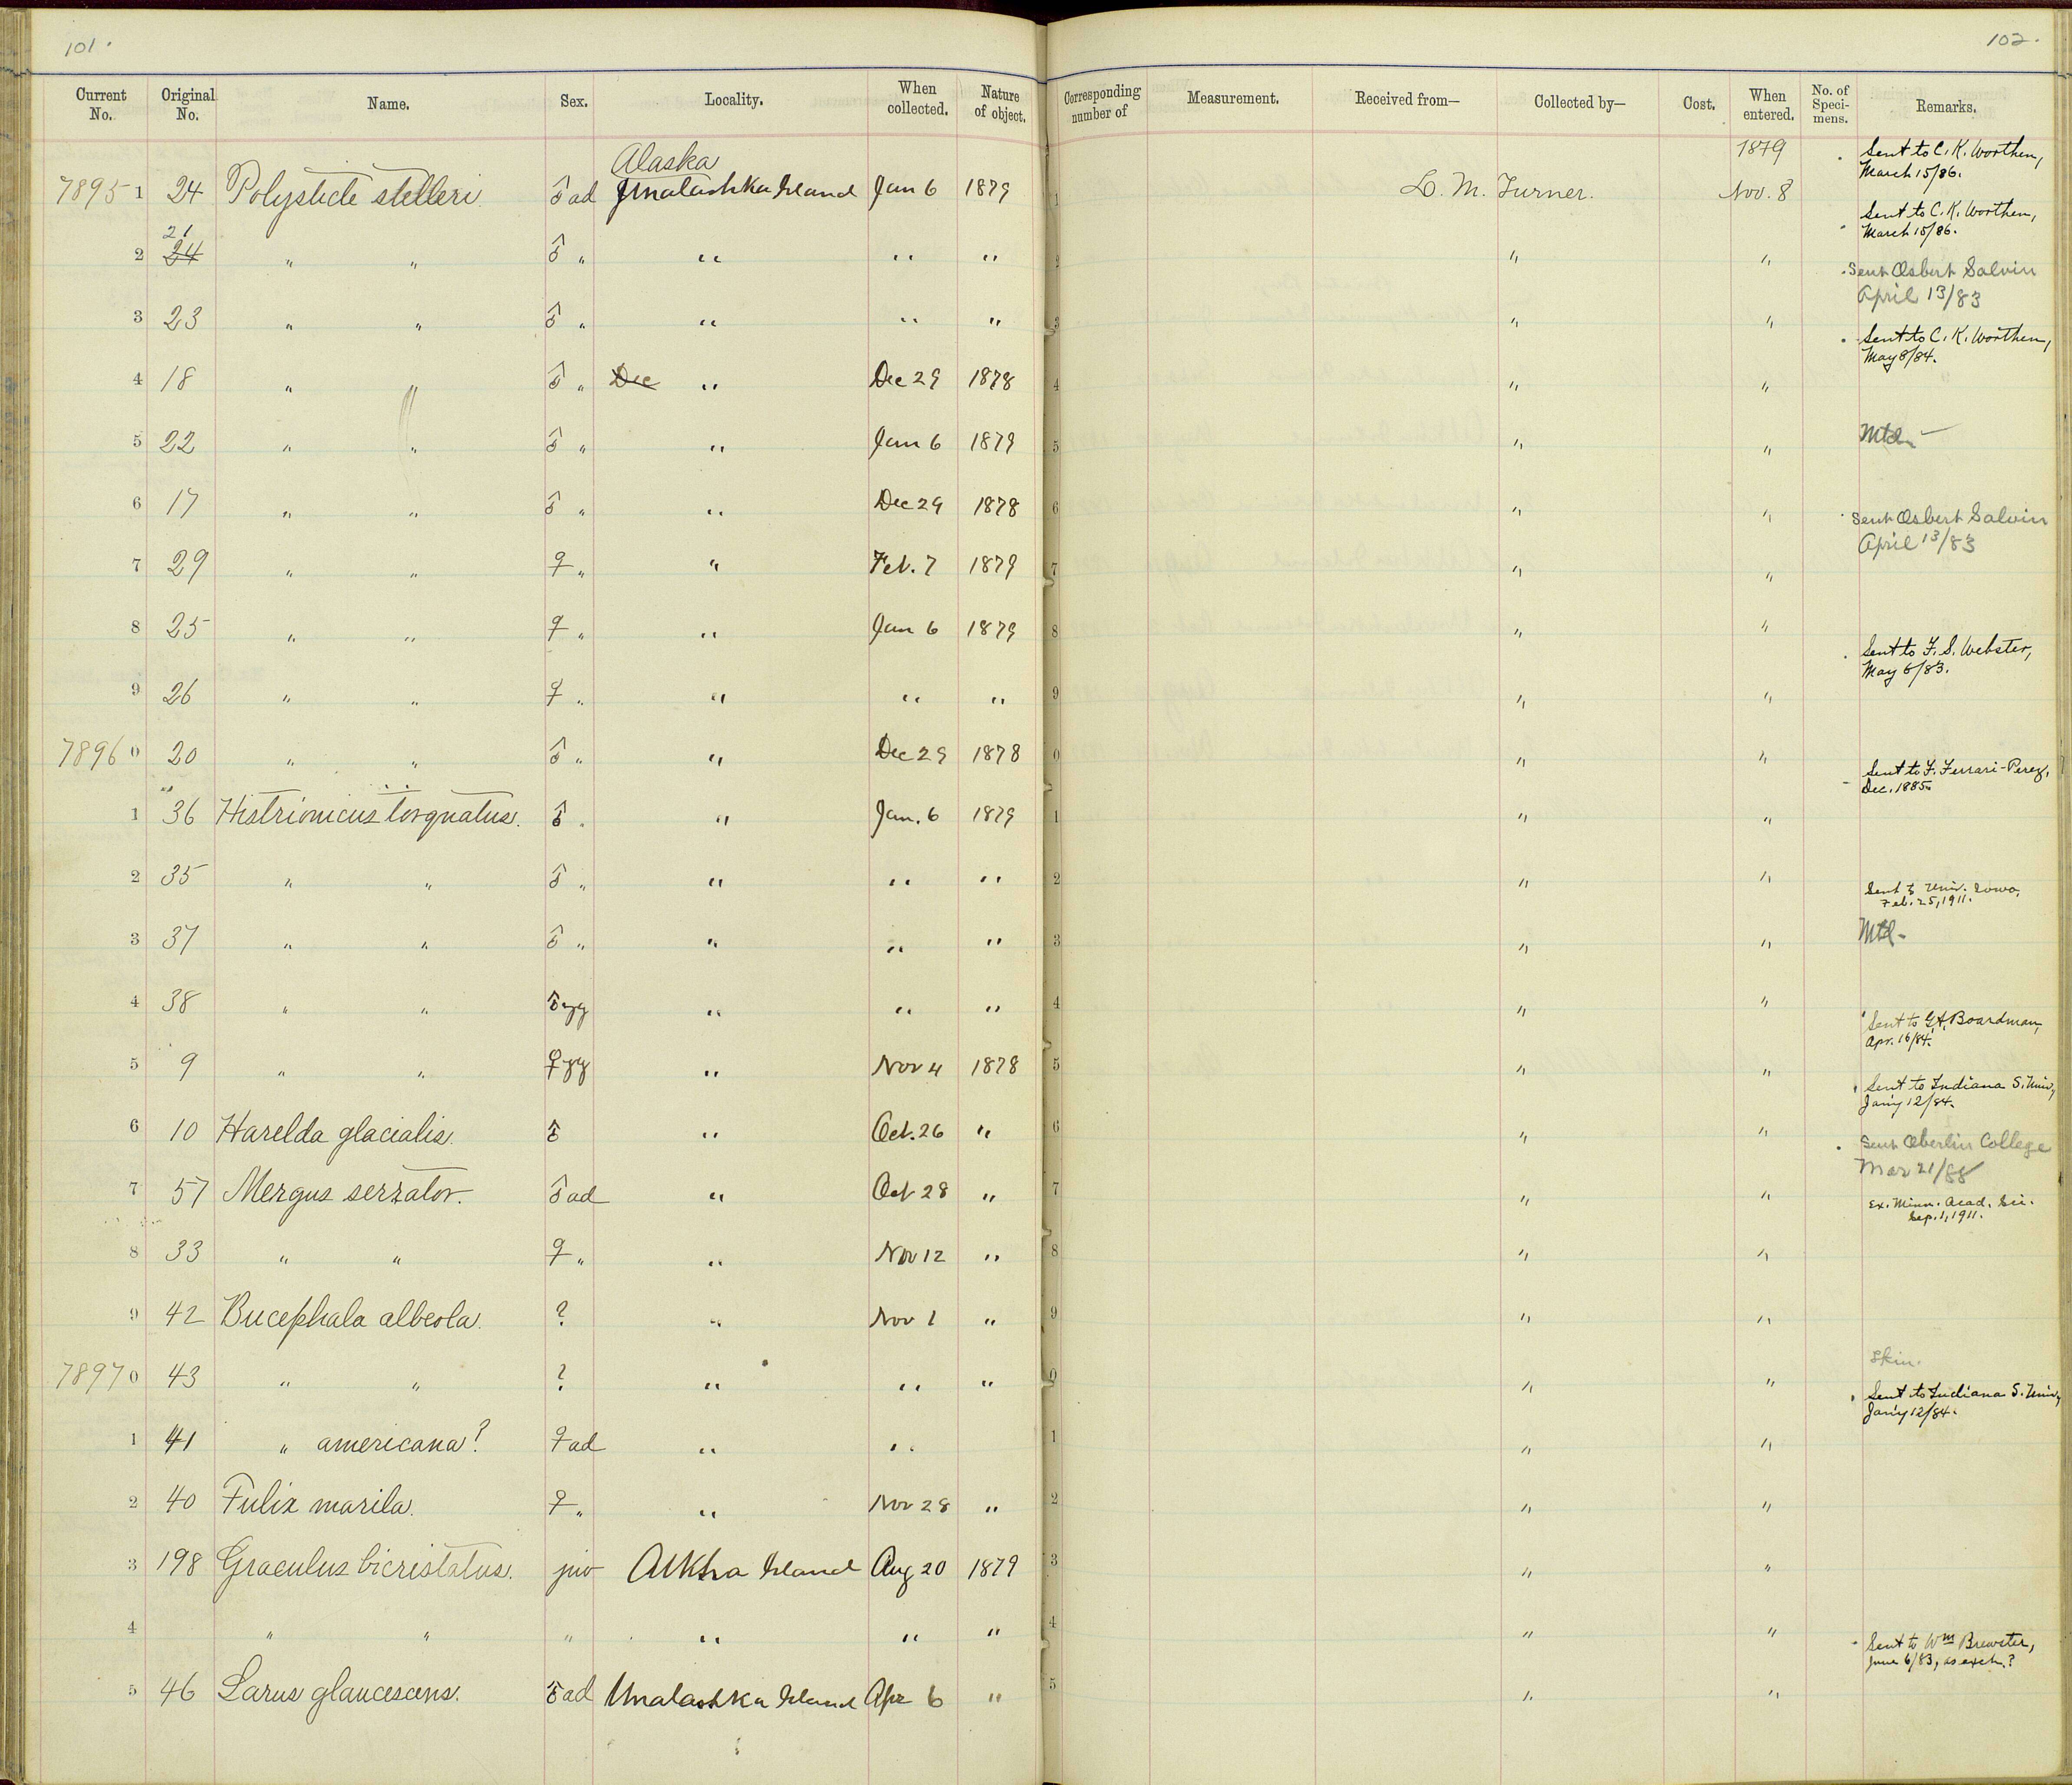 101.
102.
Current No. Original No. Name. Sex. Locality. When collected. Nature of object. Corresponding number of Measurement. Received from— Collected by— Cost. When entered. No. of Specimens. Remarks.
Alaska 1879 Sent to C. K. Worthen, March 15/86.
78951 24 Polysticte stelleri. ♂ ad Unalashka Island Jan 6 1879 1 L. M. Turner. Nov. 8
Sent to C. K. Worthen, March 15/86.
2 21 24 " " ♂ " " " " 2 " "
Sent Osbert Salvin April 13/83
3 23 " " ♂ " " " " 3 " "
Sent to C. K. Worthen, May 8/84.
4 18 " " ♂ " Dec " Dec 29 1878 4 " "
5 22 " " ♂ " " Jan 6 1879 5 " " Mtd
6 17 " " ♂ " " Dec 29 1878 6 " " Sent Osbert Salvin April 13/83
7 29 " " ♀ " " Feb. 7 1879 7 " "
8 25 " " ♀ " " Jan 6 1879 8 " "
Sent to F. S. Webster, May 6/83.
9 26 " " ♀ " " " " 9 " "
78960 20 " " ♂ " " Dec 29 1878 0 " "
Sent to F. Ferrari-Perez, Dec. 1885
1 36 Histrionicus torquatus. ♂ " " Jan. 6 1879 1 " "
2 35 " " ♂ " " " " 2 " "
Sent to Univ. Iowa, Feb. 25, 1911.
3 37 " " ♂ " " " " 3 " " Mtd -
4 38 " " ♂ yg " " " 4 " "
Sent to G. A. Boardman, Apr. 16/84.
5 9 " " ♀ yg " Nov 4 1878 5 " "
Sent to Indiana S. Univ, Jan'y 12/84.
6 10 Harelda glacialis. ♂ " Oct. 26 " 6 " "
Sent Oberlin College Mar 21/88
7 57 Mergus serrator. ♂ ad " Oct 28 " 7 " "
Ex. Minn. Acad. Sci. Sep. 1, 1911.
8 33 " " ♀ " " Nov 12 " 8 " "
9 42 Bucephala albeola. ? " Nov 1 " 9 " "
78970 43 " " ? " " " 0 " " Skin.
Sent to Indiana S. Univ, Jan'y 12/84.
1 41 " americana? ♀ ad " " 1 " "
2 40 Fulix marila. ♀ " " Nov 28 " 2 " "
3 198 Graculus bicristatus. juv Atkha Island Aug 20 1879 3 " "
4 " " " " " " 4 " "
Sent to Wm Brewster, June 6/83, as exch.?
5 46 Larus glaucescens. ♂ ad Unalashka Island Apr 6 " 5 " "